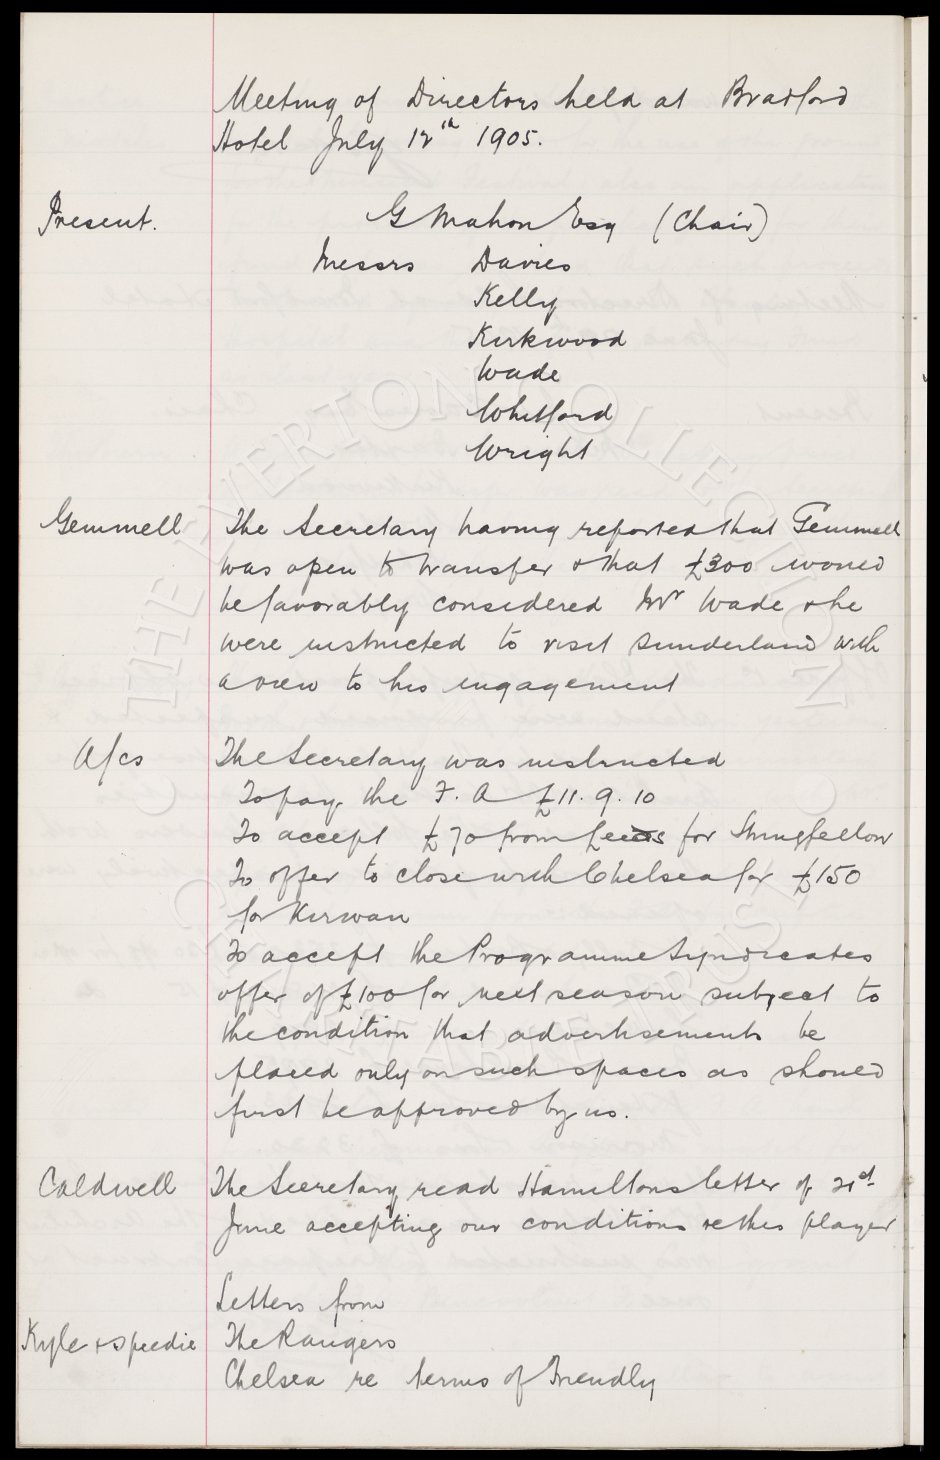 Meeting of Directors held at Bradford
Hotel July 12th 1905.
Present.
G Mahon Esq (Chair)
Messrs Davies
Kelly
Kirkwood
Wade
Whitford
Wright
Gemmell
The Secretary having reported that Gemmell
was open to transfer & that £300 would
be favorably considered Mr Wade & he
were instructed to visit Sunderland with
a view to his engagement
A/cs
The Secretary was instructed
To pay the F. A £11. 9. 10
To accept £70 from Leeds for Stringfellow
To offer to close with Chelsea for £150
for Kirwan
To accept the Programme Syndicates
offer of £100 for next season subject to
the condition that advertisements be
placed only on such spaces as should
first be approved by us.
Caldwell
The Secretary read Hamiltons letter of 21st
June accepting our conditions re this player
Letters from
Kyle & Speedie
The Rangers
Chelsea re terms of Friendly
THE EVERTON COLLECTION
CHARITABLE TRUST